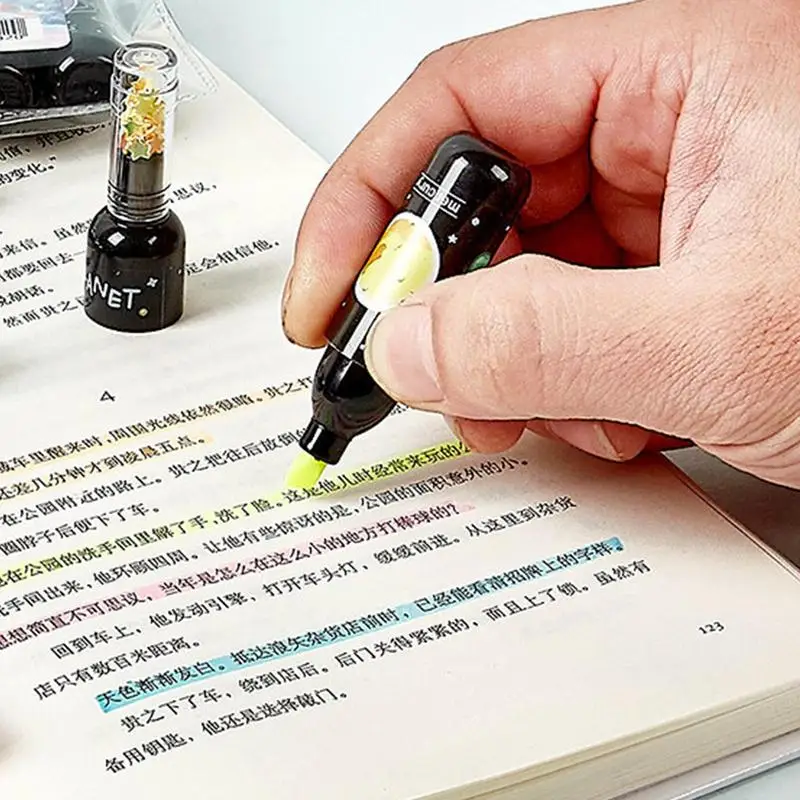 的变化。
思议，
来信。虽然
都要回去
定会相信他，
胡话。
然而贵之
ANET
mercury
4
车里醒来时，周围光线依然很暗。贵之打
还差几分钟才到凌晨五点。贵之把往后放倒的
在公园附近的路上。
脖子后便下了车。
在公园的洗手间里解了手，洗了脸。这是他儿时经常来玩的公
手间出来，他环顾四周。让他有些惊讶的是，公园的面积意外的小。
想想简直不可思议，当年是怎么在这么小的地方打棒球的？
回到车上，他发动引擎，打开车头灯，缓缓前进。从这里到杂货
店只有数百米距离。
天色渐渐发白。抵达浪矢杂货店前时，已经能看清招牌上的字样。
贵之下了车，绕到店后。后门关得紧紧的，而且上了锁。虽然有
备用钥匙，他还是选择敲门。
123